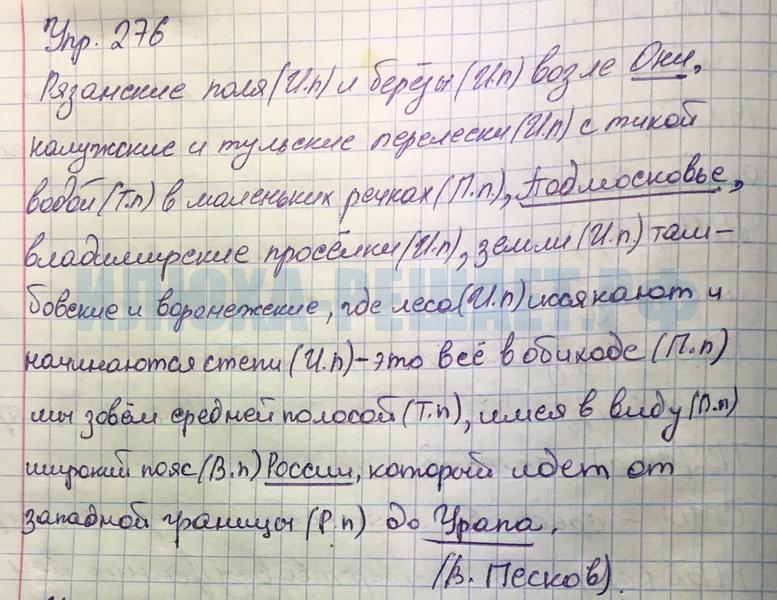 Упр. 276
Рязанские поля (И.п) и берёзы (И.п) возле Оки,
калужские и тульские перелески (И.п) с тихой
водой (Т.п) в маленьких речках (П.п), Подмосковье,
владимирские просёлки (И.п), земли (И.п) там-
бовские и воронежские, где леса (И.п) иссякают и
начинаются степи (И.п) - это всё в обиходе (П.п)
мы зовём средней полосой (Т.п), имея в виду (П.п)
широкий пояс (В.п) России, который идет от
западной границы (Р.п) до Урала.
(В. Песков).
ИЛЮХА-РЕШАЕТ.РФ